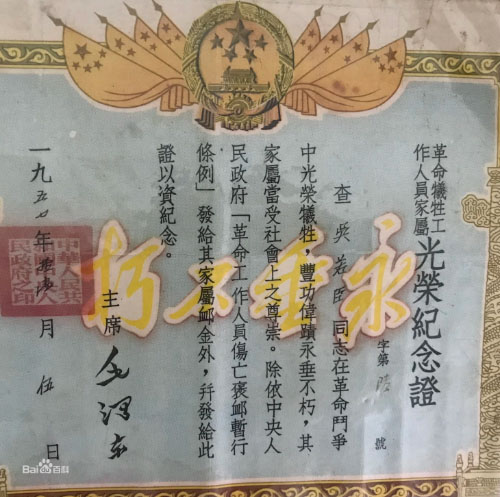 革命犧牲工
作人員家屬
光榮紀念證
字第 號
查 英 臣 同志在革命鬥爭
中光榮犧牲，豐功偉蹟永垂不朽，其
家屬當受社會上之尊崇。除依中央人
民政府「革命工作人員傷亡褒卹暫行
條例」發給其家屬卹金外，幷發給此
證以資紀念。
永垂不朽
主席 毛澤东
一九五 年 月 伍 日
中華人民共
民政府之印
Bai百科